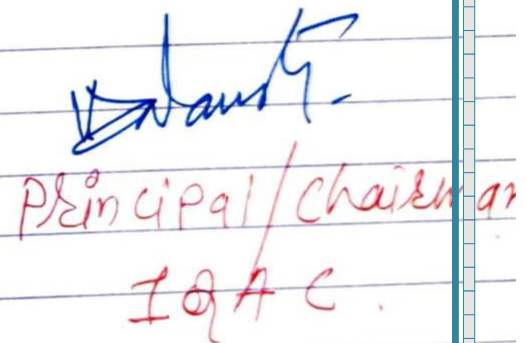 Principal/Chairman
IQAC.